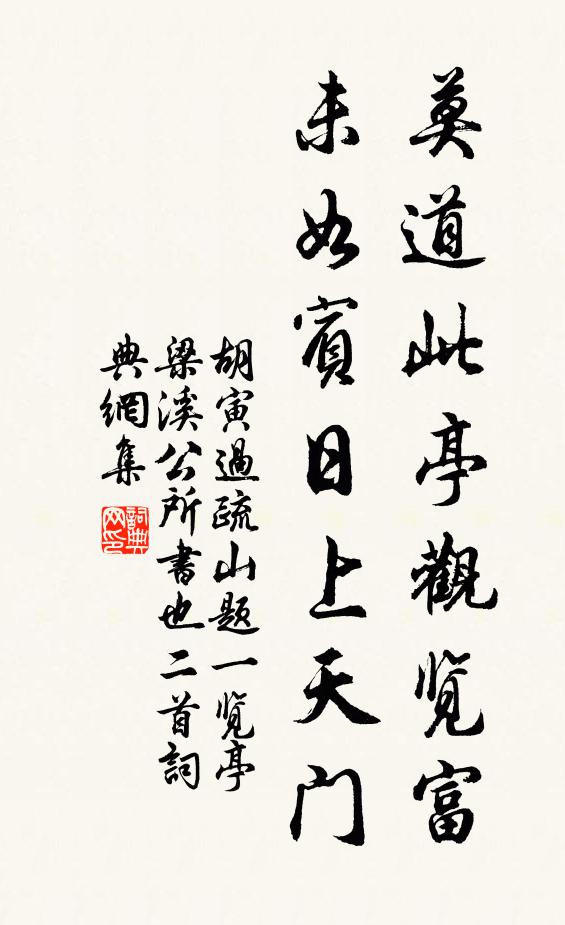 莫道此亭觀览富
未如賓日上天门
胡寅過疏山题一览亭
梁溪公所書也二首詞
典網集
詞典网印